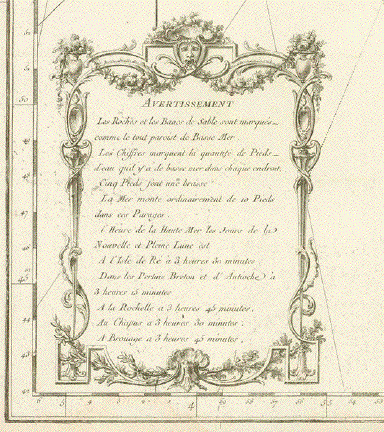 AVERTISSEMENT
Les Roches et les Bancs de Sable sont marqués
comme le tout paroist de Basse Mer
Les Chiffres marquent la quantité de Pieds
d'eau qu'il y a de basse mer dans chaque endroit.
Cinq Pieds font une brasse
La Mer monte ordinairement de 10 Pieds
dans ces Parages.
L'Heure de la Haute Mer les Jours de la
Nouvelle et Pleine Lune est
A l'Isle de Ré à 3 heures 30 minutes
Dans les Pertuis Breton et d'Antioche à
3 heures 15 minutes
A la Rochelle à 3 heures 45 minutes.
Au Chapus à 3 heures 30 minutes.
A Brouage à 3 heures 45 minutes.